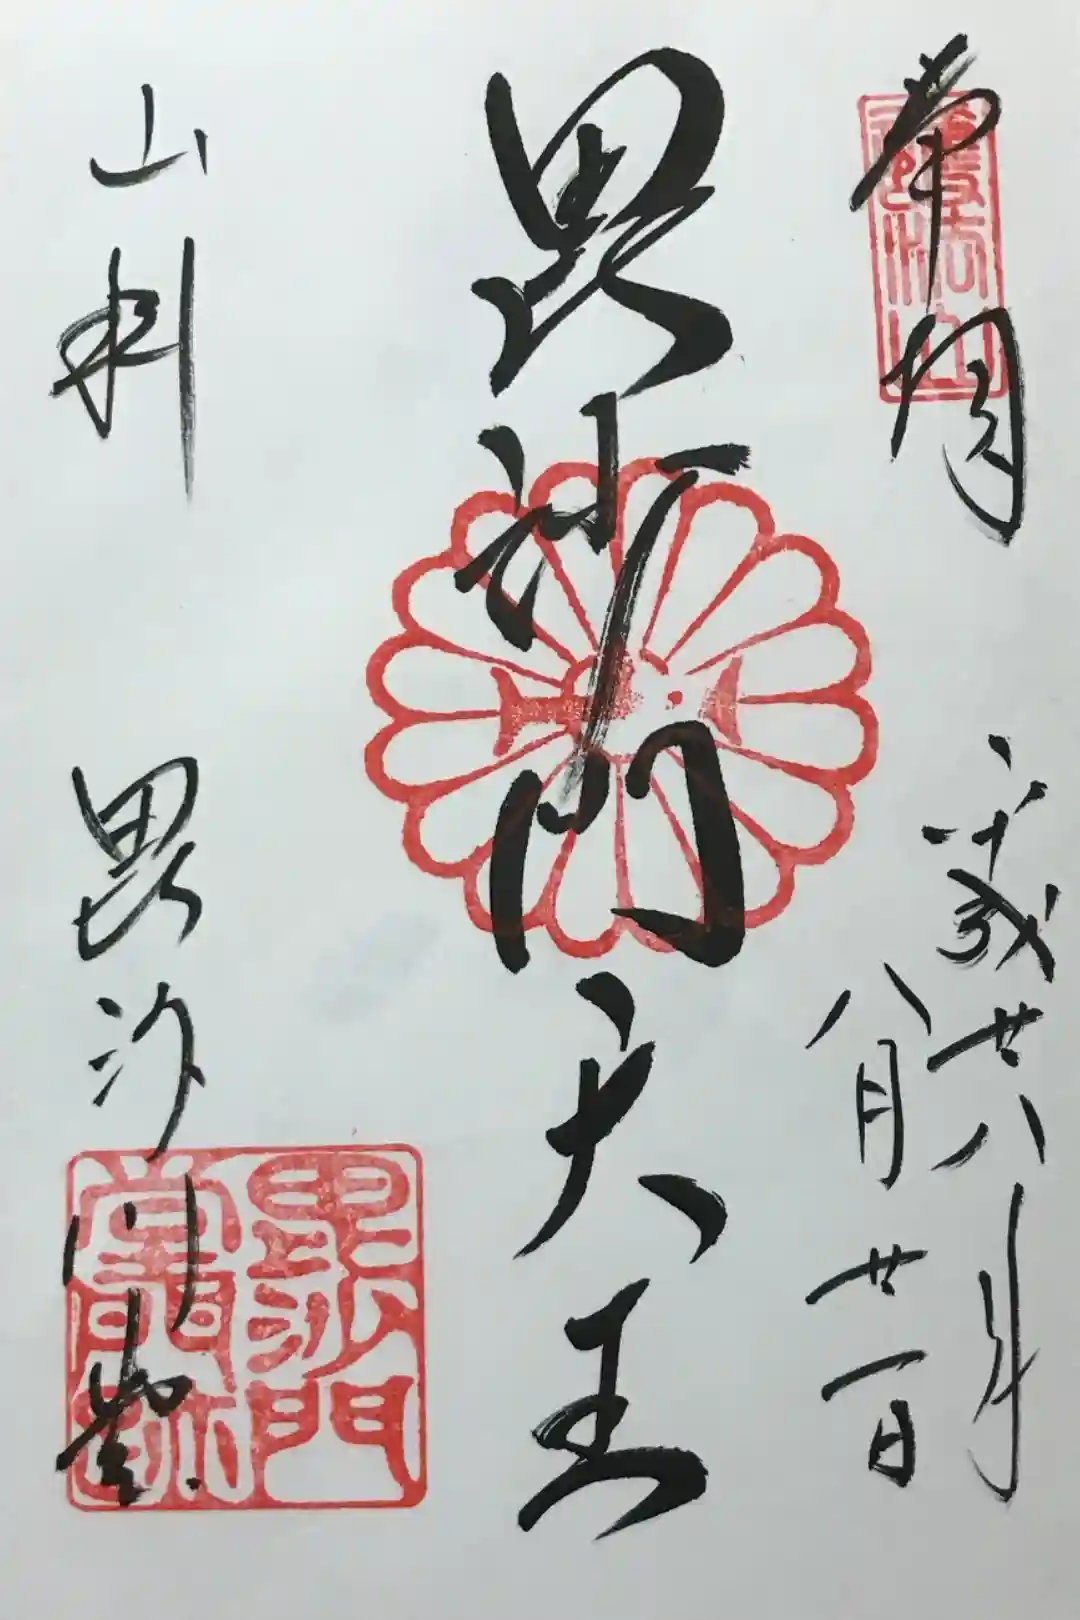 奉拝
平成廿八年
八月廿一日
護法山
毘沙門天王
山科
毘沙門堂
毘沙門
堂門跡